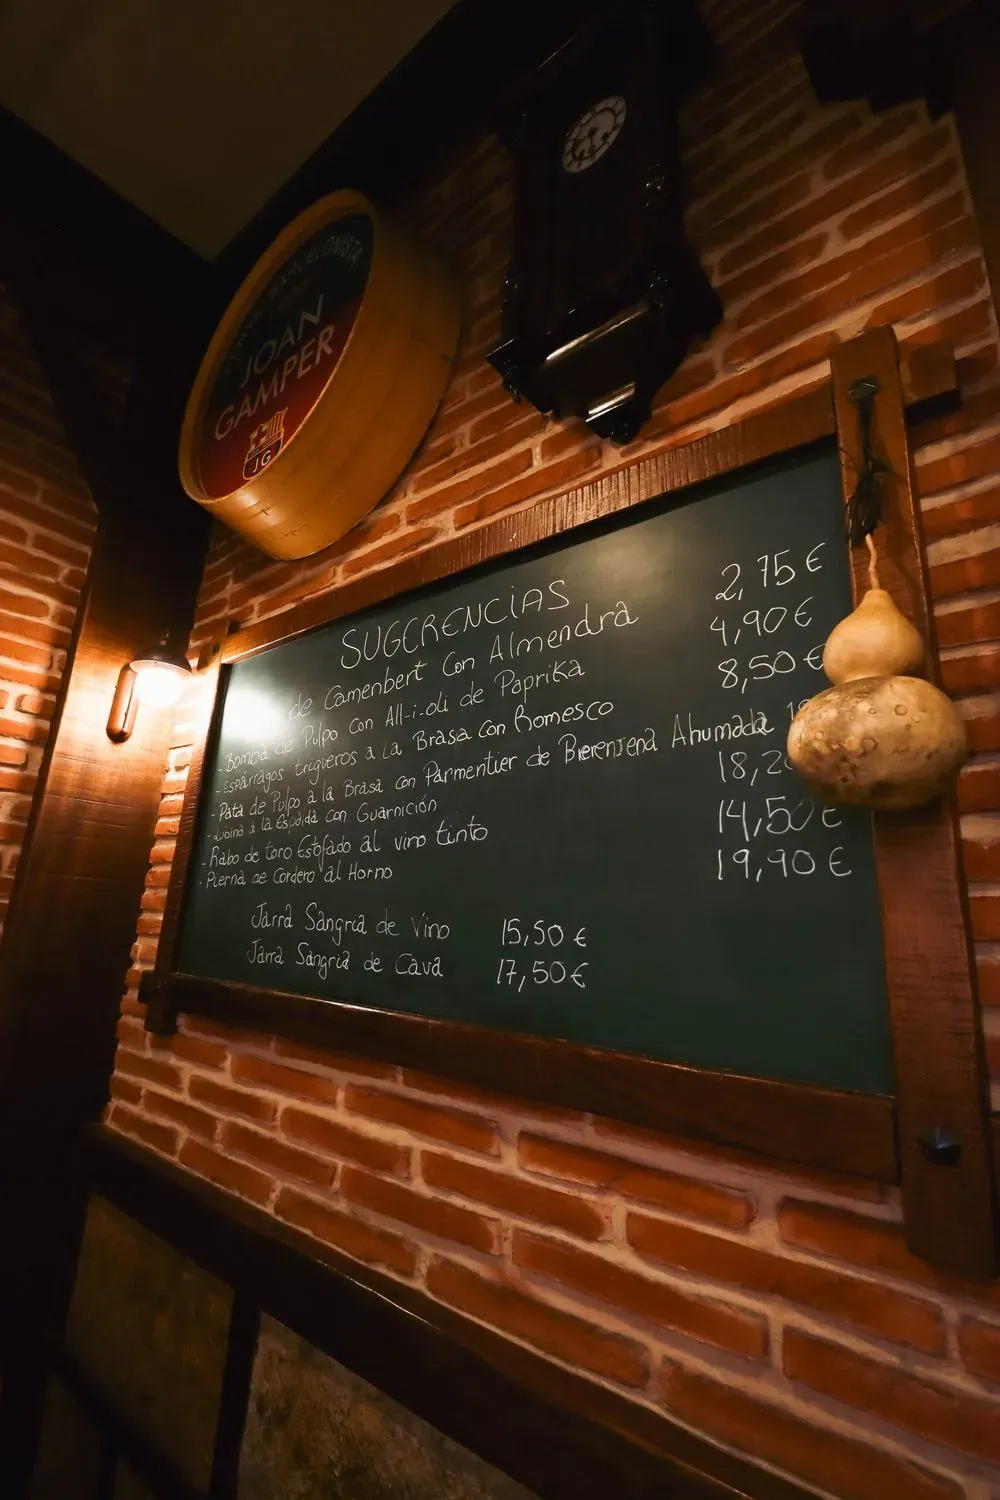 BARCELONISTA
JOAN
GAMPER
JG
SUGERENCIAS
de Camenbert Con Almendra 2,75 €
- Bomba de Pulpo con All-i-oli de Paprika 4,90 €
- Espárragos trigueros a la Brasa con Romesco 8,50 €
- Pata de Pulpo a la Brasa con Parmentier de Berenjena Ahumada
- Lubina a la Espalda con Guarnición 18,2
- Rabo de toro Estofado al vino tinto 14,50 €
- Pierna de Cordero al Horno 19,90 €
Jarra Sangria de Vino 15,50 €
Jarra Sangria de Cava 17,50 €